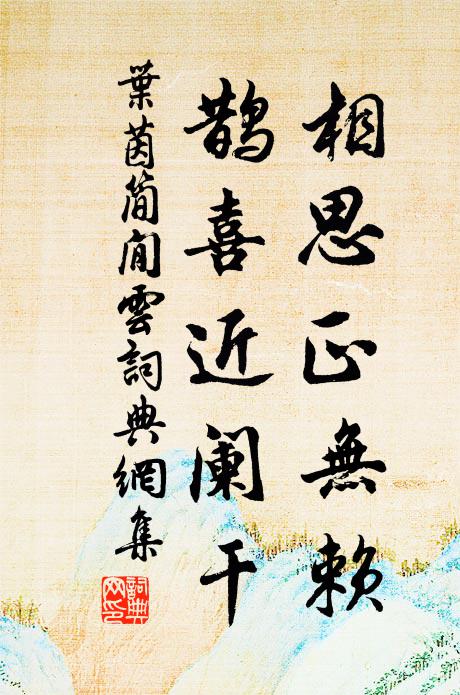 相思正無賴
鵲喜近阑干
葉茵簡閒雲詞典網集
詞典
网印